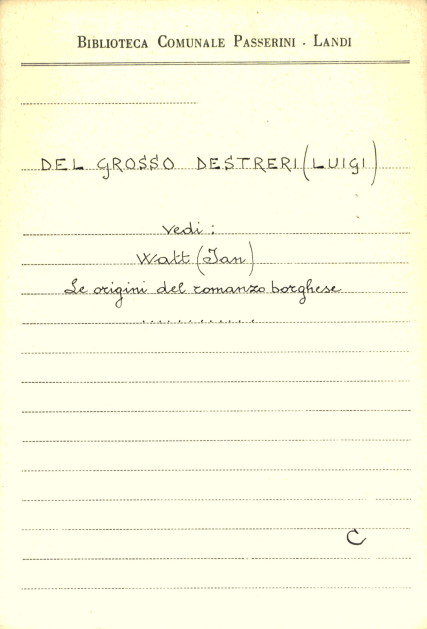 BIBLIOTECA COMUNALE PASSERINI - LANDI
DEL GROSSO DESTRERI (LUIGI)
Vedi :
Watt (Ian)
Le origini del romanzo borghese
...........
C